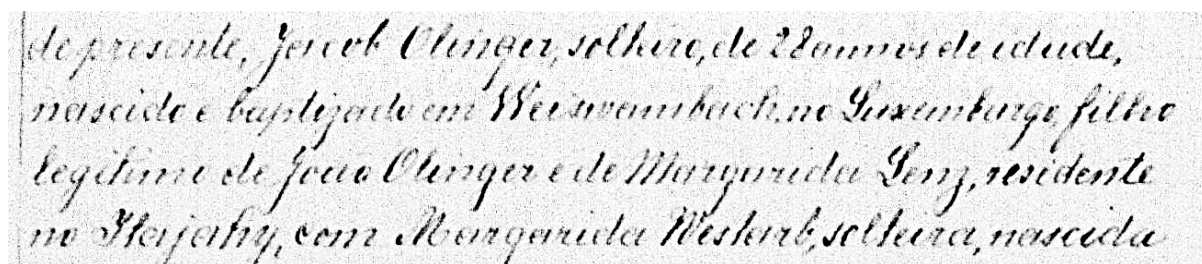 de presente, Jacob Olinger, solteiro, de 28 annos de idade,
nascido e baptizado em Weiswambach, no Luxemburgo, filho
legitimo de João Olinger e de Margarida Lenz, residente
no Itajahy, com Margarida Westarb, solteira, nascida